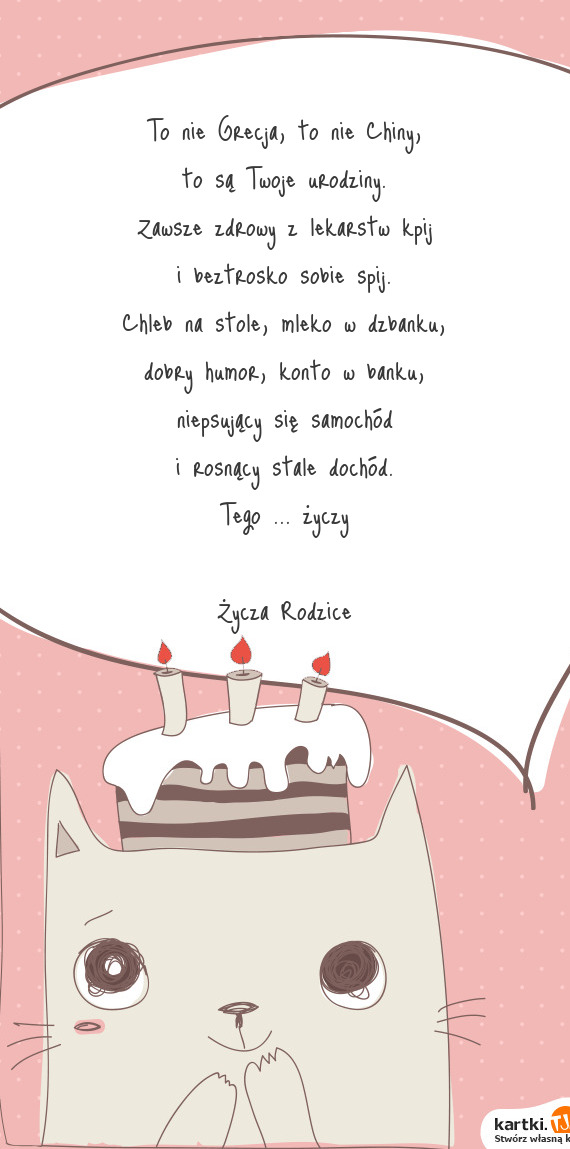 To nie Grecja, to nie Chiny,
to są Twoje urodziny.
Zawsze zdrowy z lekarstw kpij
i beztrosko sobie spij.
Chleb na stole, mleko w dzbanku,
dobry humor, konto w banku,
niepsujący się samochód
i rosnący stale dochód.
Tego ... życzy
Życza Rodzice
kartki.TJ
Stwórz własną k